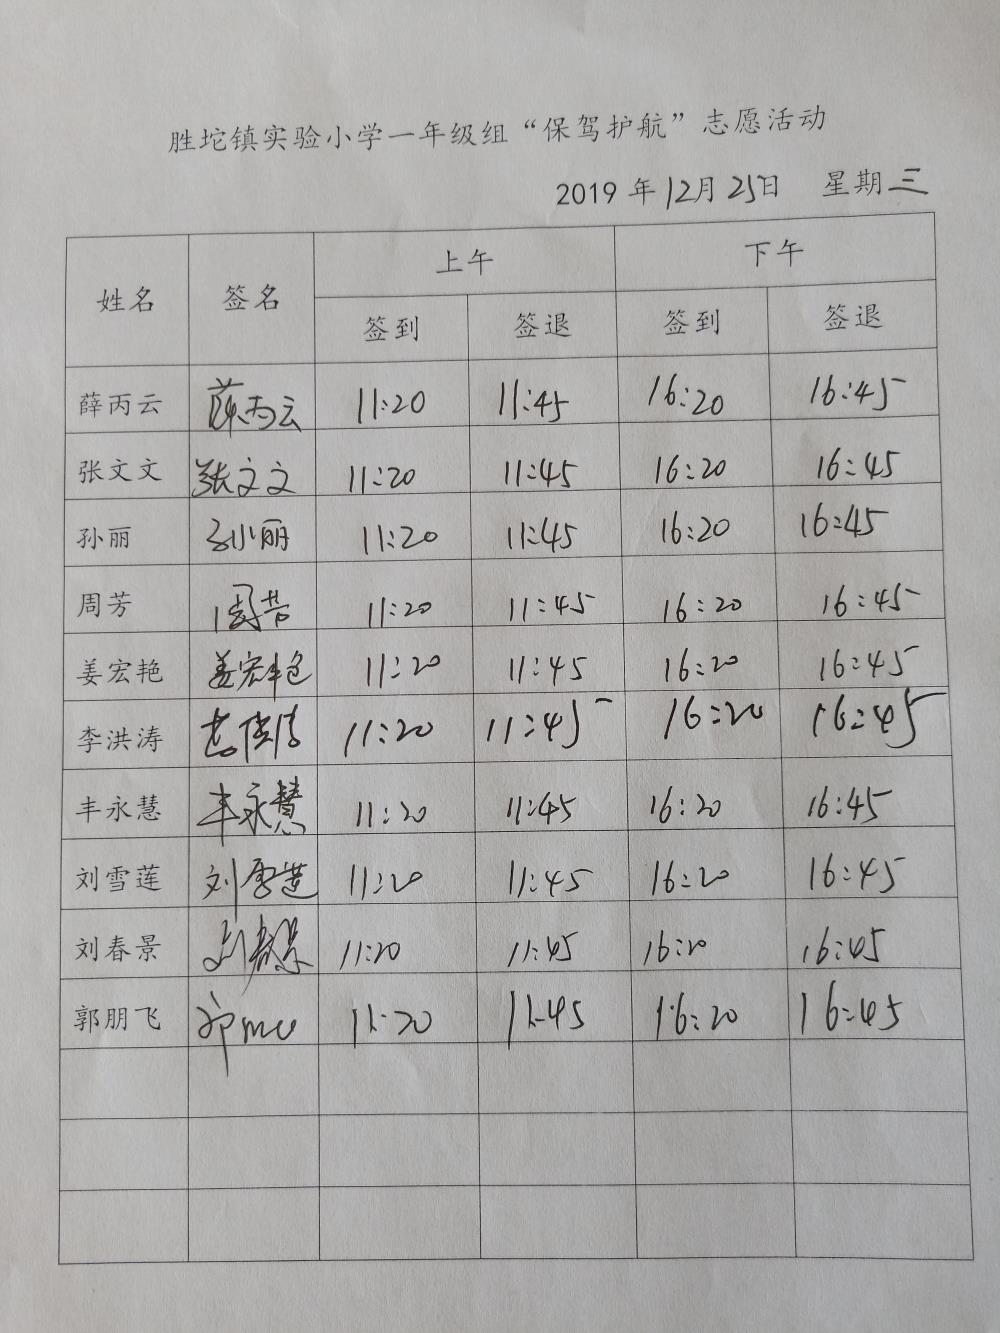 胜坨镇实验小学一年级组“保驾护航”志愿活动
2019年12月25日 星期三
姓名 签名 上午 下午
签到 签退 签到 签退
薛丙云 薛丙云 11:20 11:45 16:20 16:45
张文文 张文文 11:20 11:45 16:20 16:45
孙丽 孙小丽 11:20 11:45 16:20 16:45
周芳 周芳 11:20 11:45 16:20 16:45
姜宏艳 姜宏艳 11:20 11:45 16:20 16:45
李洪涛 11:20 11:45 16:20 16:45
丰永慧 丰永慧 11:20 11:45 16:20 16:45
刘雪莲 刘雪莲 11:20 11:45 16:20 16:45
刘春景 刘春景 11:20 11:45 16:20 16:45
郭朋飞 11:20 11:45 16:20 16:45